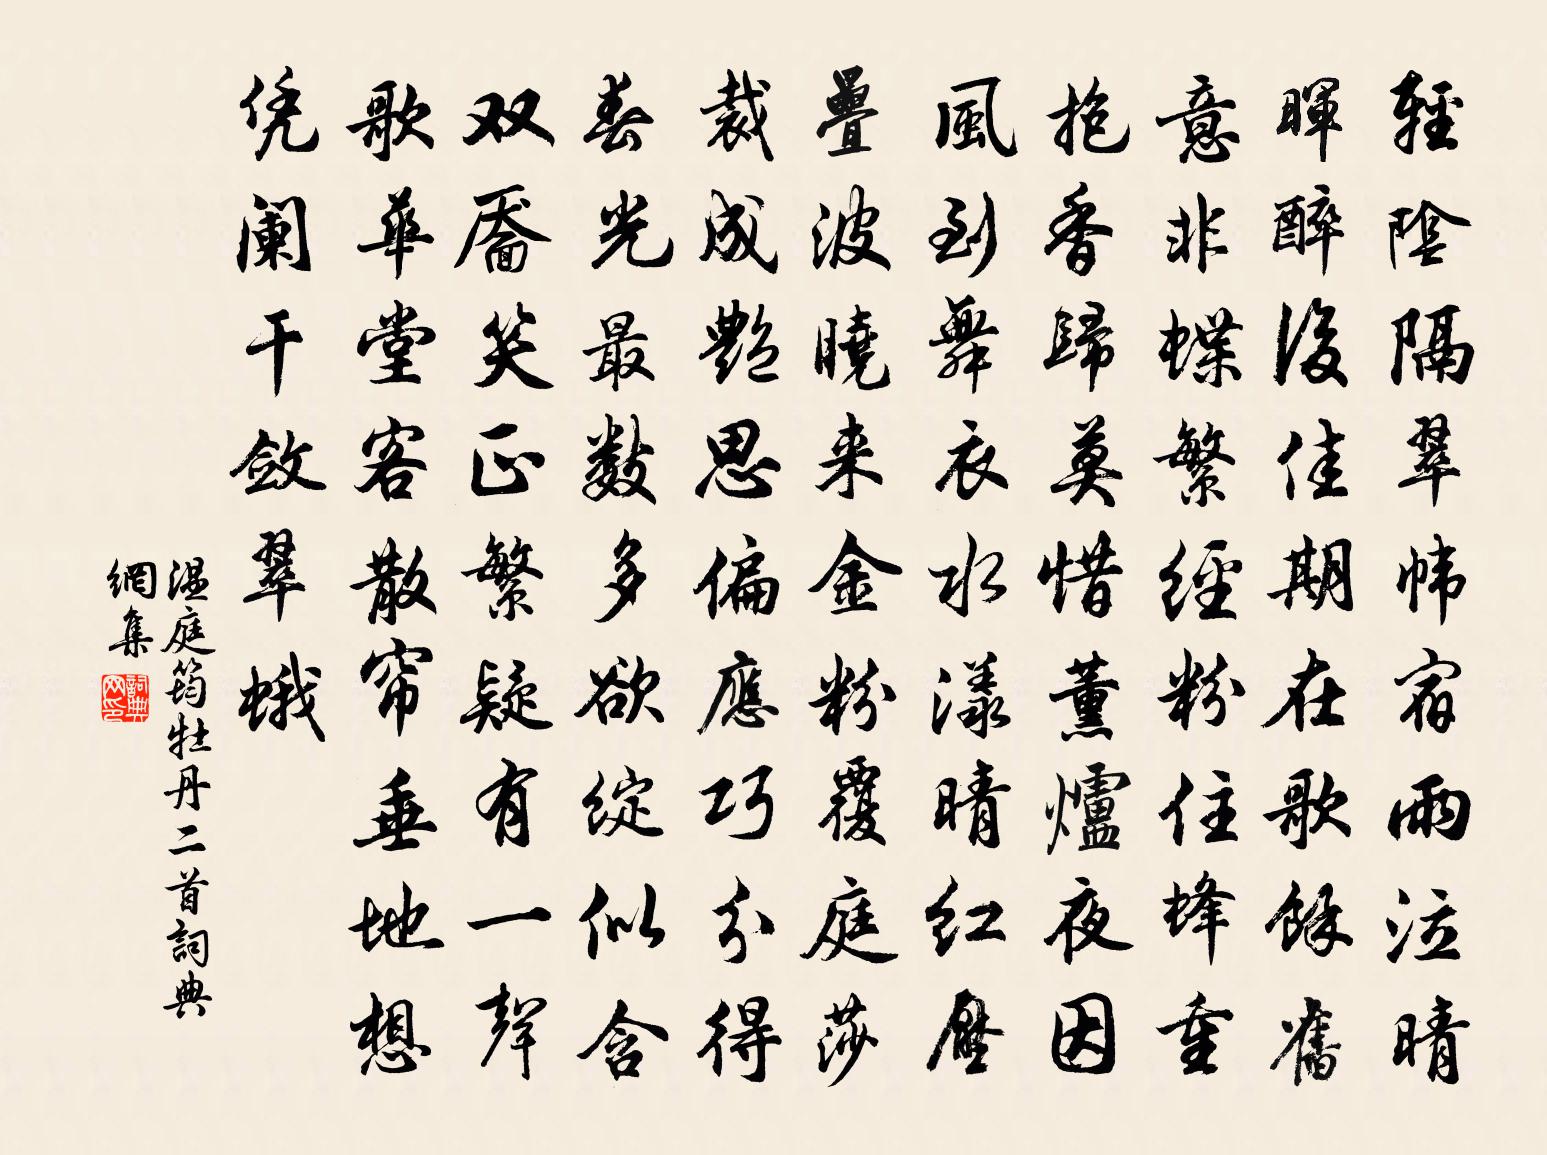 輕陰隔翠幃宿雨泣晴
暉醉後佳期在歌餘舊
意非蝶繁經粉住蜂重
抱香歸莫惜薰爐夜因
風到舞衣水漾晴紅壓
疊波曉来金粉覆庭莎
裁成艷思偏應巧分得
春光最數多欲綻似含
双靨笑正繁疑有一聲
歌華堂客散帘垂地想
凭阑干斂翠蛾
温庭筠牡丹二首詞典
網集
詞典
网印